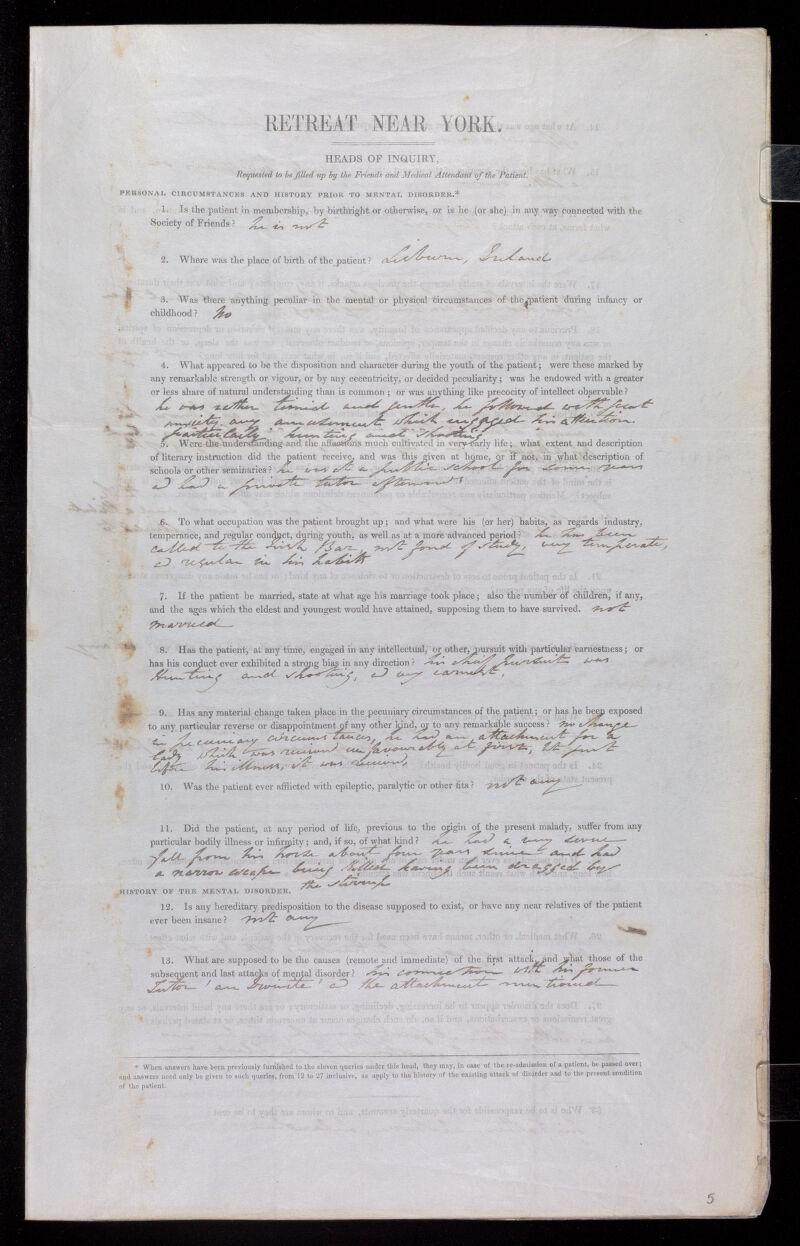 RETREAT NEAR YORK.
HEADS OF INQUIRY,
Requested to be filled up by the Friends and Medical Attendant of the Patient.
PERSONAL CIRCUMSTANCES AND HISTORY PRIOR TO MENTAL DISORDER.*
1. Is the patient in membership, by birthright or otherwise, or is he (or she) in any way connected with the
Society of Friends? he is not
2. Where was the place of birth of the patient? Lisburn, Ireland
3. Was there anything peculiar in the mental or physical circumstances of the patient during infancy or
childhood? No
4. What appeared to be the disposition and character during the youth of the patient; were these marked by
any remarkable strength or vigour, or by any eccentricity, or decided peculiarity; was he endowed with a greater
or less share of natural understanding than is common; or was anything like precocity of intellect observable?
he was rather timid and gentle, he followed with great
anxiety any amusement which engaged his attention
particularly hunting and shooting
5. Were the understanding and the affections much cultivated in very early life; what extent and description
of literary instruction did the patient receive, and was this given at home, or if not, in what description of
schools or other seminaries? he was at a public school for some years
and had a private tutor afterwards
6. To what occupation was the patient brought up; and what were his (or her) habits, as regards industry,
temperance, and regular conduct, during youth, as well as at a more advanced period? he has been
called to the Irish Bar, not fond of study, very temperate,
and regular in his habits
7. If the patient be married, state at what age his marriage took place; also the number of children, if any,
and the ages which the eldest and youngest would have attained, supposing them to have survived. not
married
8. Has the patient, at any time, engaged in any intellectual, or other, pursuit with particular earnestness; or
has his conduct ever exhibited a strong bias in any direction? his chief pursuit was
Hunting and shooting, and very earnest.
9. Has any material change taken place in the pecuniary circumstances of the patient; or has he been exposed
to any particular reverse or disappointment of any other kind, or to any remarkable success? no change
in pecuniary circumstances, he had an attachment for a
lady which was received unfavourably at first, but just
before his illness, it was received.
10. Was the patient ever afflicted with epileptic, paralytic or other fits? not any
11. Did the patient, at any period of life, previous to the origin of the present malady, suffer from any
particular bodily illness or infirmity; and, if so, of what kind? he had a very severe
fall from his horse about four years since and had
a narrow escape being killed having been dragged by
the stirrup
HISTORY OF THE MENTAL DISORDER.
12. Is any hereditary predisposition to the disease supposed to exist, or have any near relatives of the patient
ever been insane? not any
13. What are supposed to be the causes (remote and immediate) of the first attack, and what those of the
subsequent and last attacks of mental disorder? his connection with his former
Tutor 'an Irvinite' and the attachment mentioned
* When answers have been previously furnished to the eleven queries under this head, they may, in case of the re-admission of a patient, be passed over;
and answers need only be given to such queries, from 12 to 27 inclusive, as apply to the history of the existing attack of disorder and to the present condition
of the patient.
5